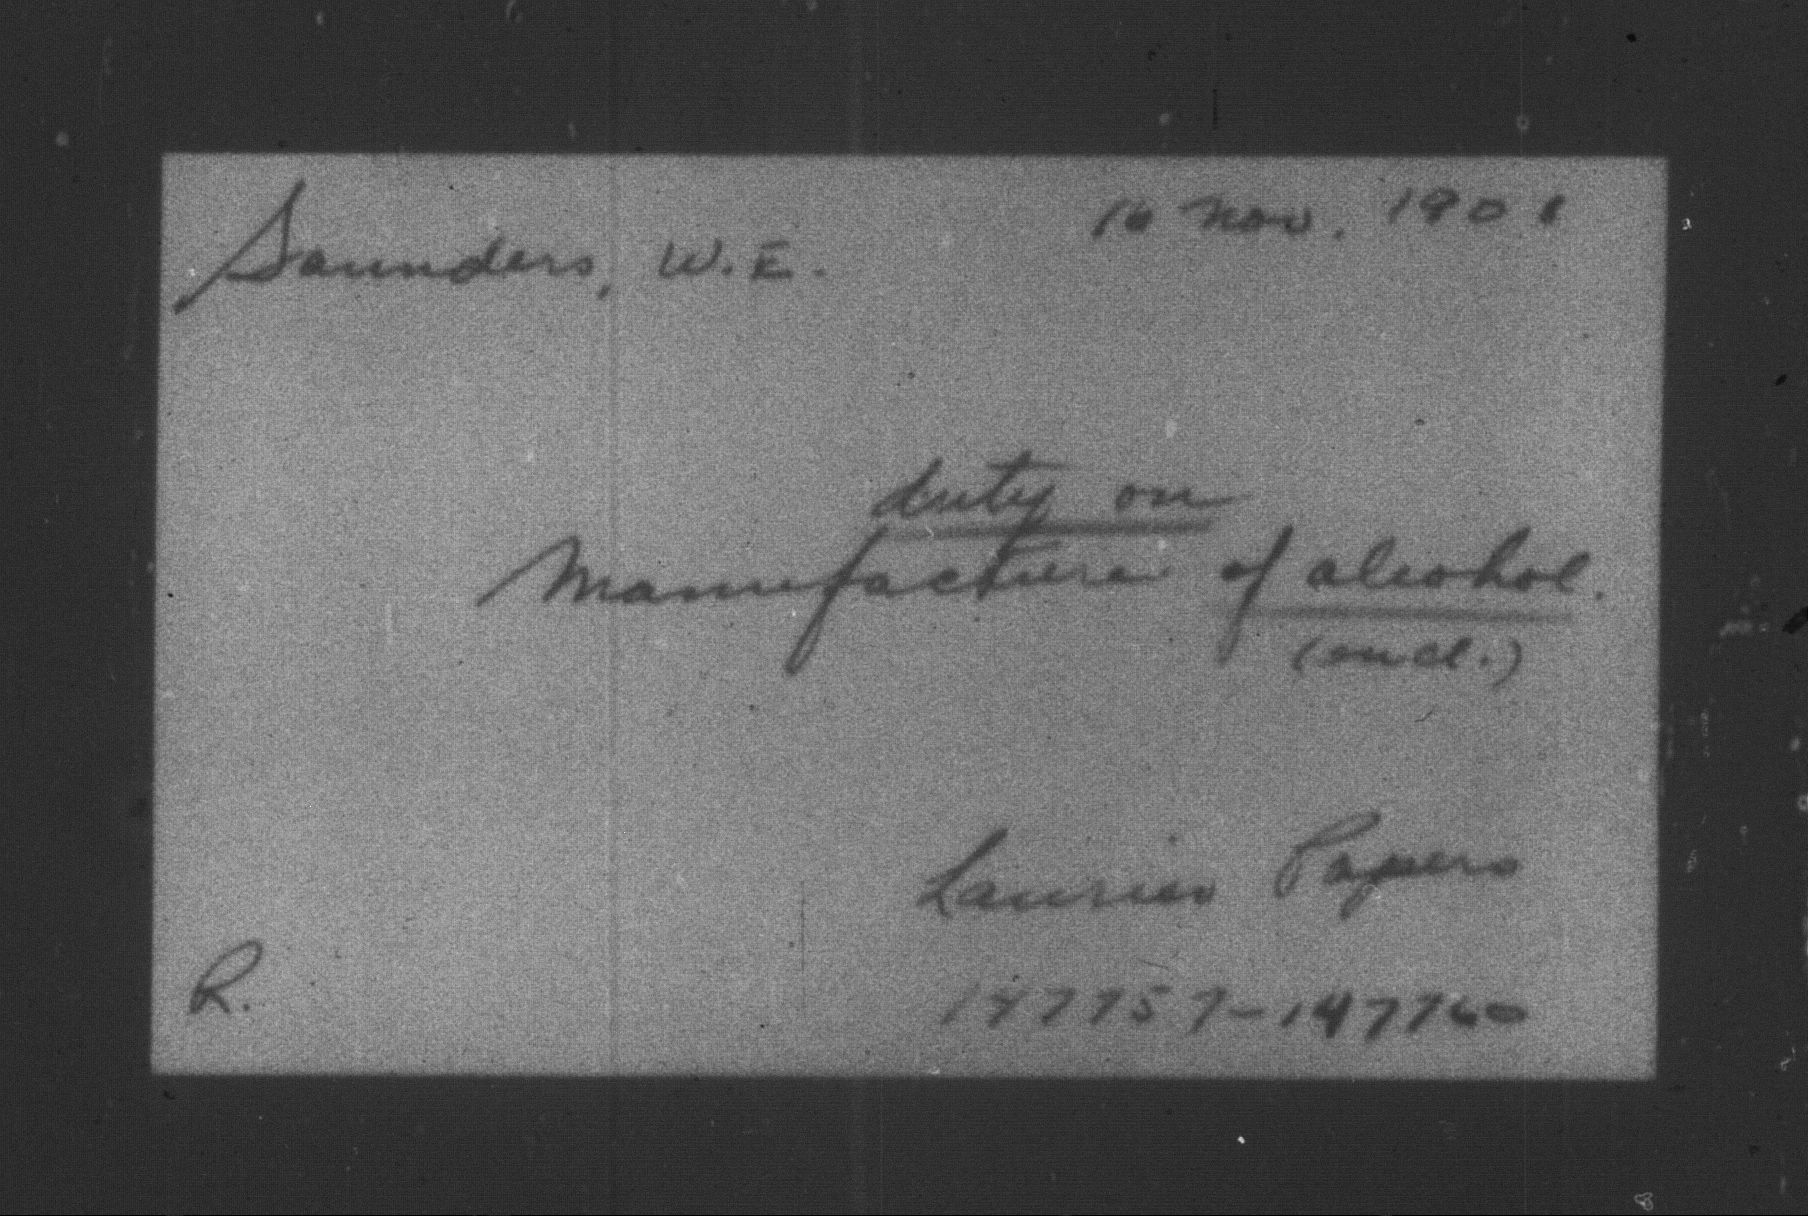 Saunders, W.E.
16 Nov. 1901
duty on
Manufacture of alcohol.
(encl.)
Laurier Papers
R.
147757-147760